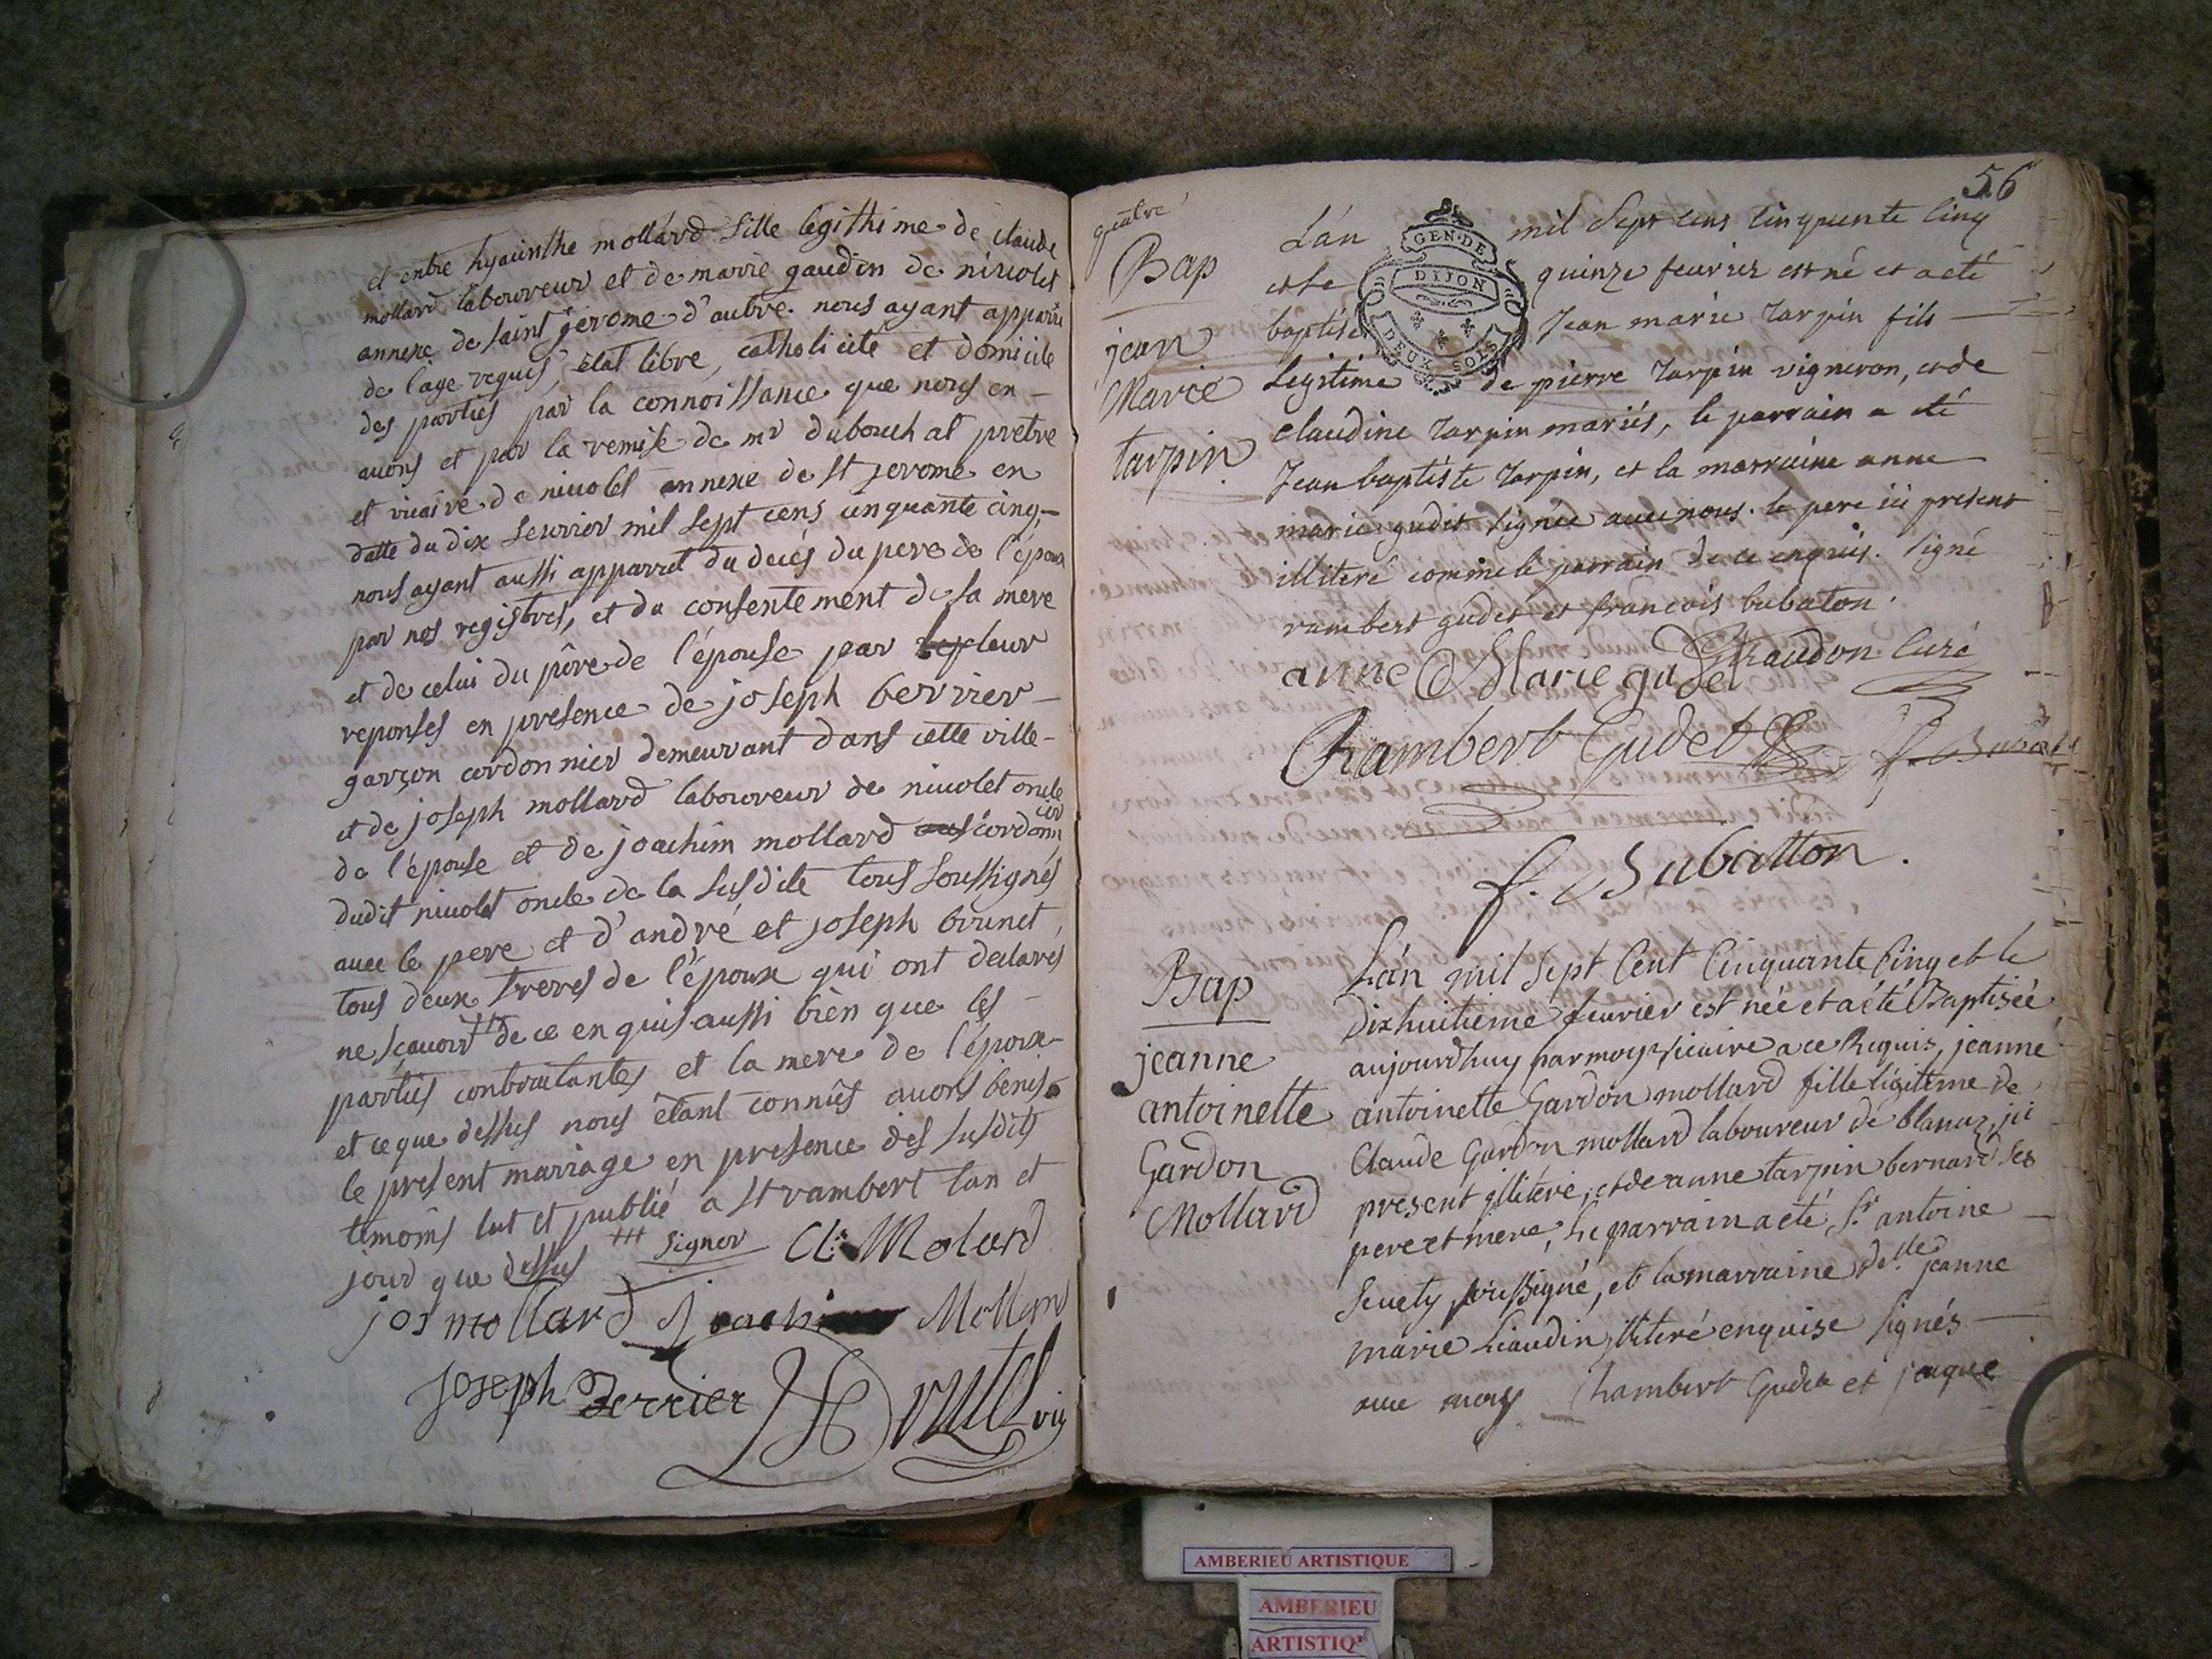 et entre hyacinthe mollard fille legithime de claude
mollard laboureur et de marie gaudin de nivolet
annexe de saint jerome d'autre. nous ayant apparu
de l'age requis, état libre, catholicité et domicile
des parties par la connoissance que nous en
avons et par la remise de mr dubouchat pretre
et vicaire de nivolet annexe de st jerome en
datte du dix fevrier mil sept cens cinquante cinq,
nous ayant aussi apparut du decés du pere de l'époux
par nos registres, et du consentement de sa mere
et de celui du pere de l'épouse par leur
reponses en presence de joseph berrier
garçon cordonnier demeurant dans cette ville
et de joseph mollard laboureur de nivolet oncle
de l'épouse et de joachim mollard cordonnier
dudit nivolet oncle de la susdite tous soussignés
avec le pere et d'andré et joseph brunet,
tous deux freres de l'époux qui ont declarés
ne sçavoir +++ de ce enquis aussi bien que les
parties contractantes et la mere de l'époux
et ce que dessus nous étant connus avons benis
le present mariage en presence des susdits
temoins lut et publié a st rambert l'an et
jour que dessus +++ signer Cl. Molard
jos mollard Joachim Mollard
Joseph Berrier
56
quatre
Bap
jean
Marie
tarpin
GEN. DE
DIJON
DEUX SOLS
L'án mil sept cens cinquante cinq
et le quinze fevrier est né et a eté
baptisé Jean marie tarpin fils
legitime de pierre tarpin vigneron, et de
claudine tarpin mariés, le parrain a eté
Jean baptiste tarpin, et la marraine anne
marie gudet signée avec nous. le pere ici present
illiteré comme le parrain de ce enquis. signé
rambert gudet et francois bubaton.
anne Marie gudet Giraudon Curé
Rambert Gudet f. Bubat
f. Bubatton.
Bap
jeanne
antoinette
Gardon
Mollard
L'án mil sept Cent Cinquante Cinq et le
dixhuitieme fevrier est née et a été Baptisée
aujourdhuy par moy vicaire a ce Requis, jeanne
antoinette Gardon mollard fille légitime de
Claude Gardon mollard laboureur de blanaz, ici
present illiteré, et de anne tarpin bernard ses
pere et mere, Le parrain a eté, Sr antoine
Sevety soussigné, et la marraine dlle jeanne
marie Liaudin illiteré enquise signés
avec moy Rambert Gudet et jaque
AMBERIEU ARTISTIQUE
AMBERIEU
ARTISTIQ